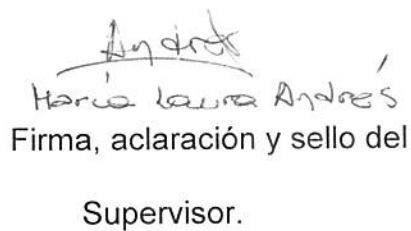 Andrés
María Laura Andrés
Firma, aclaración y sello del
Supervisor.